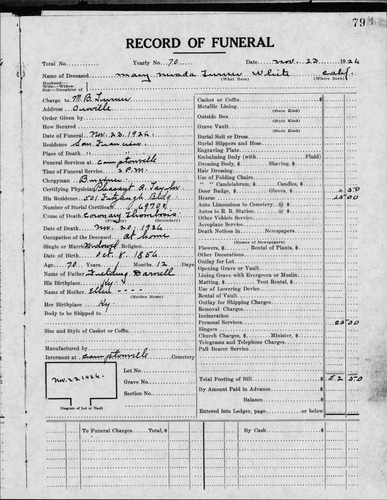 79
RECORD OF FUNERAL
Total No. Yearly No. 70 Date Nov. 22 1926
Name of Deceased Mary Turner White Calif.
(What Born) (Where Born)
Husband—
Wife—Widow of
Son—Daughter
Charge to M.B. Turner
Address Oroville
Order Given by
How Secured
Date of Funeral Nov. 22, 1926.
Residence San Francisco
Place of Death
Funeral Services at Camptonville
Time of Funeral Service 2 P.M.
Clergyman
Certifying Physician A. Taylor
His Residence 501 Fitzhugh Bldg.
Number of Burial Certificate
Cause of Death Coronary Thrombosis
(Primary) (Secondary)
Date of Death Nov. 20 1926
Occupation of the Deceased At home
Single or Married Widowed Religion
Date of Birth Oct. 8, 1856
Age 70 Years Months 12 Days
Name of Father Fielding Darnell
His Birthplace Ky.
Name of Mother Ellen - - - -
(Maiden Name)
Her Birthplace Ky
Body to be Shipped to
Size and Style of Casket or Coffin
Manufactured by
Interment at Camptonville Cemetery
Lot No.
Grave No.
Section No.
Nov. 22 1926.
Diagram of Lot or Vault
Casket or Coffin
Metallic Lining
(State Kind)
Outside Box
(State Kind)
Grave Vault
(State Kind)
Burial Suit or Dress
Burial Slippers and Hose
Engraving Plate
Embalming Body (with Fluid)
Dressing Body, $ Shaving, $
Hair Dressing
Use of Folding Chairs
" " Candelabrum, $ Candles, $
Door Badge, $ Gloves, $ 2 50
Hearse 25 00
Auto Limousines to Cemetery @ $
Autos to R. R. Station @ $
Other Vehicle Service
Aeroplane Service
Death Notices in Newspapers
(Names of Newspapers)
Flowers, $ Rental of Plants, $
Other Decorations
Outlay for Lot
Opening Grave or Vault
Lining Grave with Evergreen or Muslin
Matting, $ Tent Rental, $
Use of Lowering Device
Rental of Vault
Outlay for Shipping Charges
Removal Charges
Incineration
Personal Services 25 00
Singers
Church Charges, $ Minister, $
Telegrams and Telephone Charges
Pall Bearer Service
Total Footing of Bill $ 52 50
By Amount Paid in Advance
Balance
Entered into Ledger, page or below
To Funeral Charges Total $ By Cash $